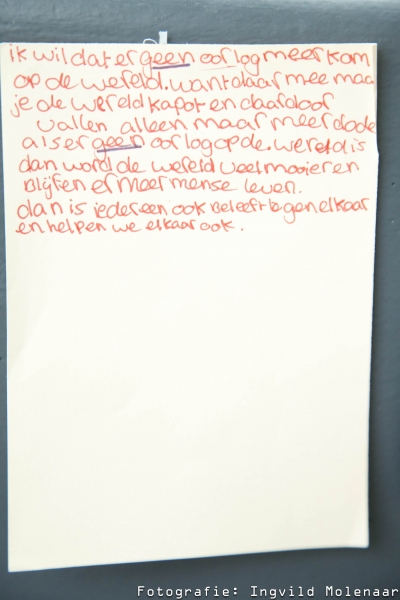 ik wil dat er geen oorlog meer kom
op de wereld. want daar mee maa
je de wereld kapot en daardoor
vallen alleen maar meer dode
als er geen oorlog op de wereld is
dan word de wereld veel mooier en
blijfen er meer mense leven.
dan is iedereen ook beleeft tegen elkaar
en helpen we elkaar ook.
Fotografie: Ingvild Molenaar